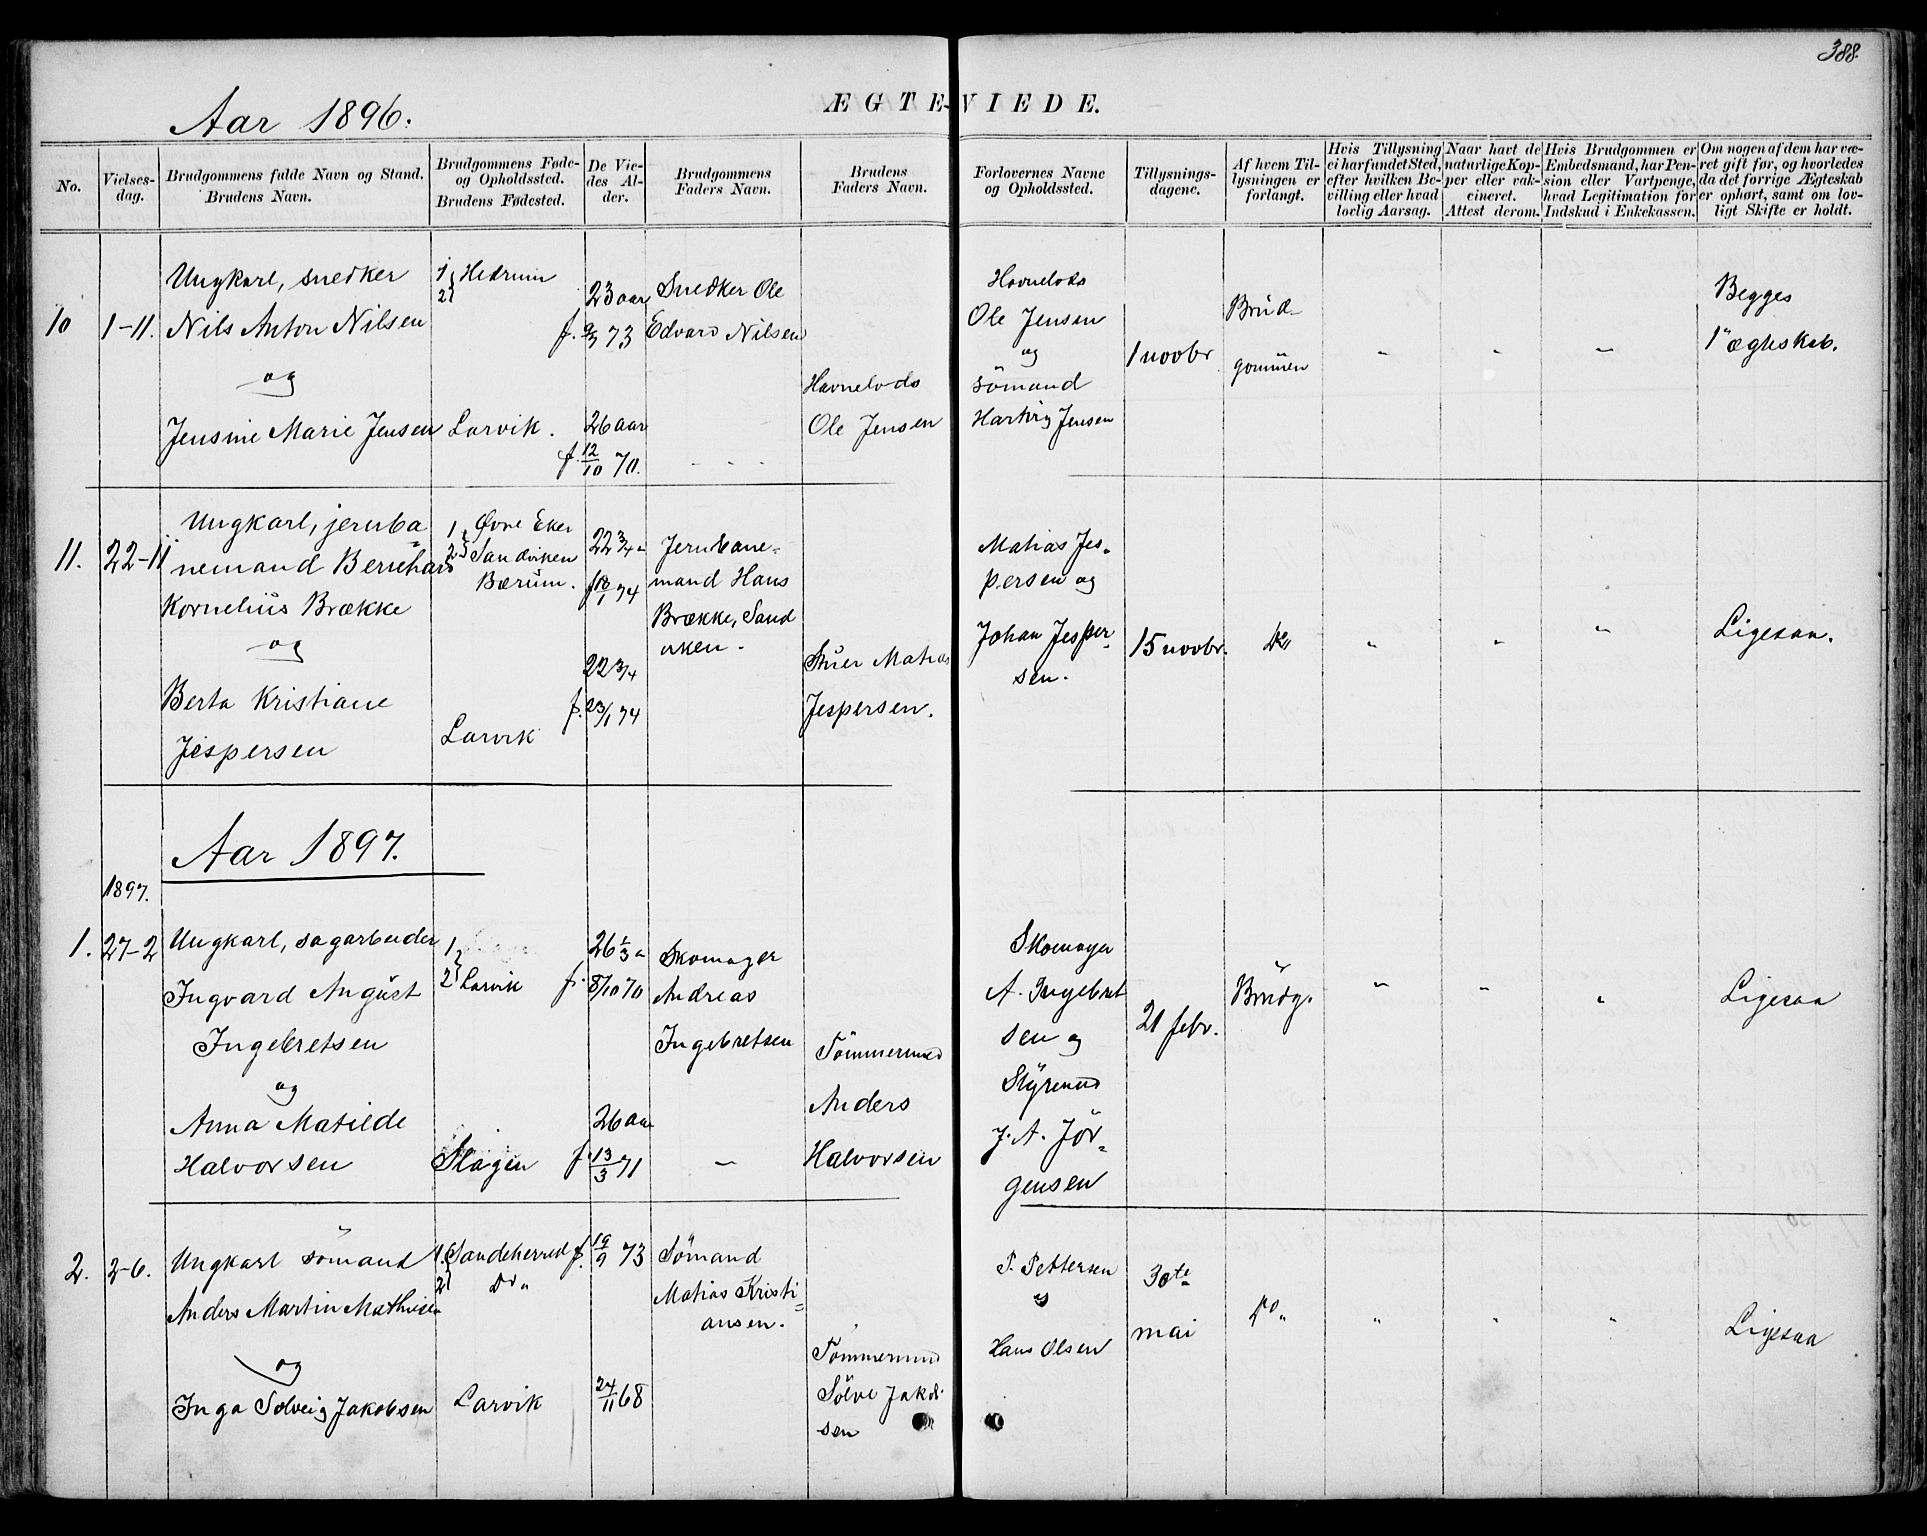 388.
Aar 1896.
ÆGTE-VIEDE.
No.
Vielses-
dag.
Brudgommens fulde Navn og Stand.
Brudens Navn.
Brudgommens Føde-
og Opholdssted.
Brudens Fødested.
De Vie-
des Al-
der.
Brudgommens
Faders Navn.
Brudens
Faders Navn.
Forlovernes Navne
og Opholdssted.
Tillysnings-
dagene.
Af hvem Til-
lysningen er
forlangt.
Hvis Tillysning
ei har fundet Sted,
efter hvilken Be-
villing eller hvad
lovlig Aarsag.
Naar havt de
naturlige Kop-
per eller vak-
cineret.
Attest derom.
Hvis Brudgommen er
Embedsmand, har Pen-
sion eller Vartpenge,
hvad Legitimation for
Indskud i Enkekassen.
Om nogen af dem har væ-
ret gift før, og hvorledes
da det forrige Ægteskab
er ophørt, samt om lov-
ligt Skifte er holdt.
10
1-11.
Ungkarl, snedker
Nils Anton Nilsen
og
Jensine Marie Jensen
1 } Hedrum
2 }
Larvik.
23 aar
f. 9/3 73
26 aar
f. 12/10 70.
Snedker Ole
Edvard Nilsen
Havnelods
Ole Jensen
Havnelods
Ole Jensen
og
sömand
Hartvig Jensen
1 novbr
Brud-
gommen
"
"
"
Begges
1ste ægteskab.
11.
22-11
Ungkarl, jernba=
nemand Bernhard
Kornelius Brække
og
Berta Kristiane
Jespersen
1 } Øvre Eker
2 } Sandviken
Bærum.
Larvik
22 3/4 a
f 18/1 74
22 3/4
f. 23/1 74
Jernbane=
mand Hans
Brække, Sand
viken.
Struer Matias
Jespersen.
Matias Jes=
persen og
Johan Jesper=
sen.
15 novbr.
Do
"
"
"
Ligesaa.
Aar 1897.
1897.
1.
27-2
Ungkarl, sagarbeider
Ingvard August
Ingebretsen
og
Anna Matilde
Halvorsen
1 }
2 } Larvik
Slagen
26 1/3 a
f. 8/10 70
26 aar
f. 13/3 71
Skomager
Andreas
Ingebretsen
"
Tømmermnd
Anders
Halvorsen
Skomager
A. Ingebret
sen og
Styrmnd
J. A. Jör=
gensen
21 febr.
Brudg.
"
"
"
Ligesaa
2.
2-6.
Ungkarl sömand
Anders Martin Mathisen
og
Inga Solveig Jakobsen
1 } Sandeherred
2 } Do "
Larvik
f. 19/9 73
24/11 68
Sömand
Matias Kristi=
ansen.
Tömmermnd
Sölve Jakob-
sen
P. Pettersen
og
Hans Olsen
30te
mai
Do "
"
"
"
Ligesaa